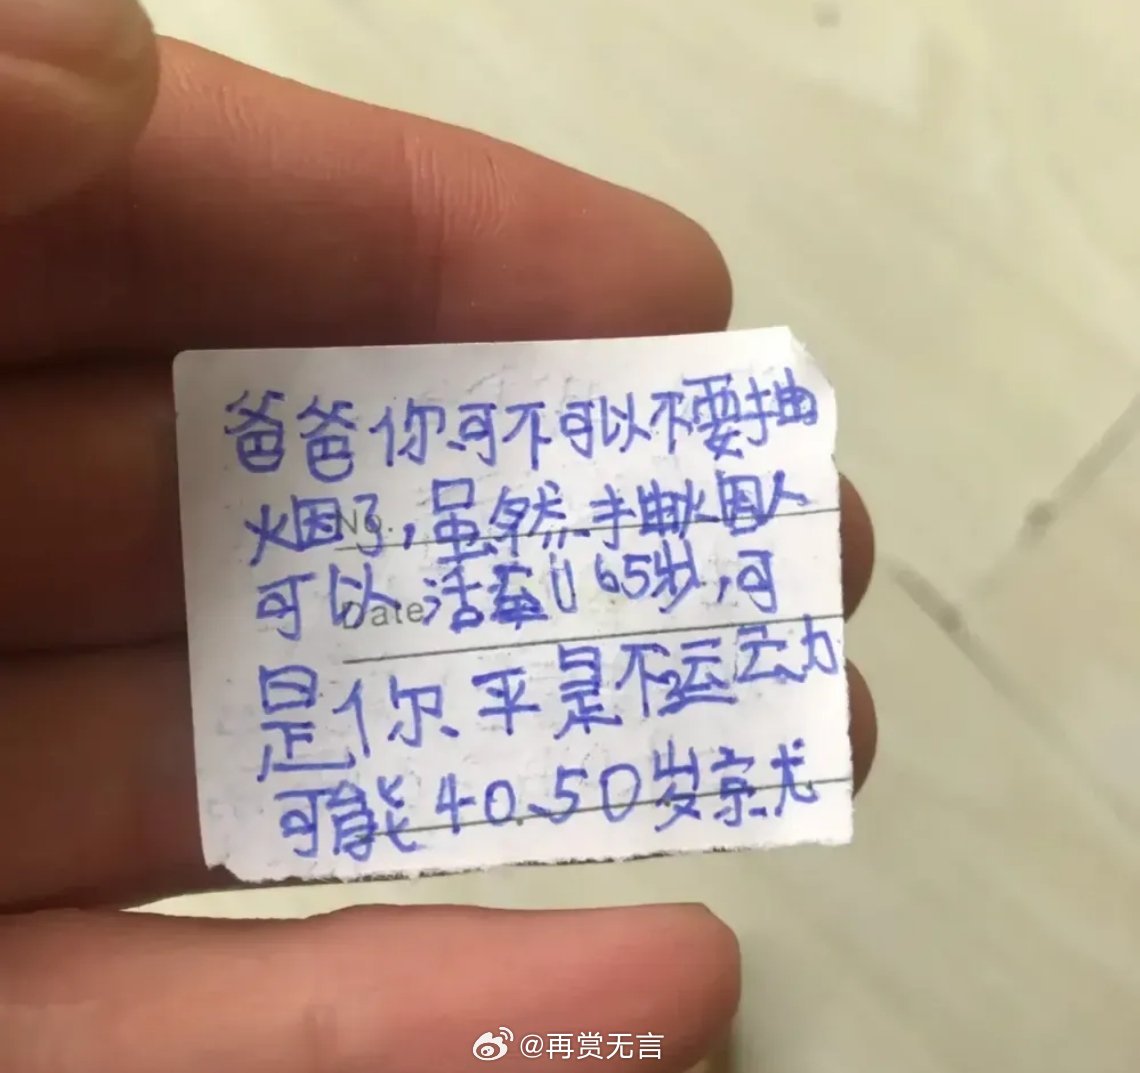 爸爸你可不可以不要抽
烟了,虽然抽烟人
可以活到65岁,可
是你平是不运动
可能40.50岁就
No.
Date
@再赏无言